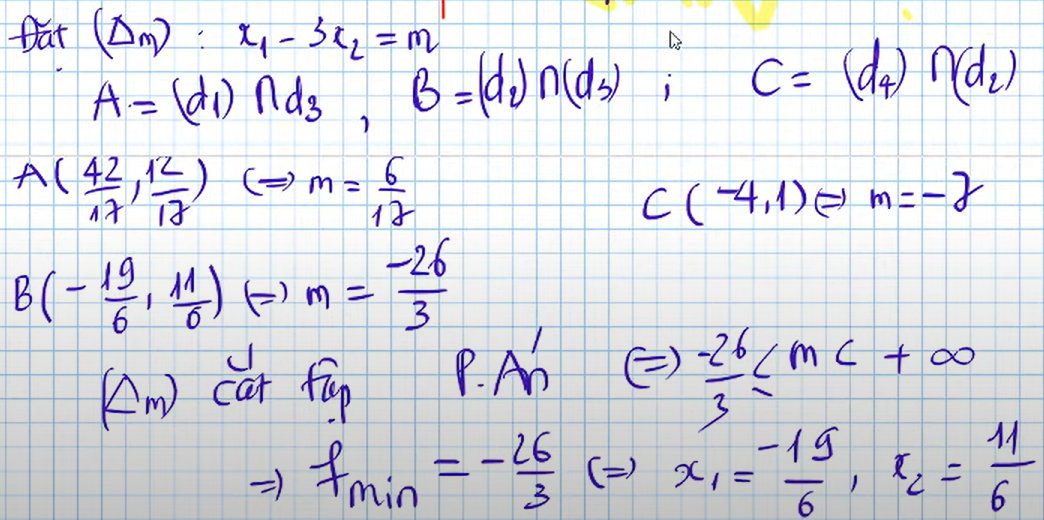 Đặt (Δm) : x₁ - 3x₂ = m
A = (d₁) ∩ d₃ , B = (d₂) ∩ (d₃) ; C = (d₄) ∩ (d₂)
A(42/17, 12/17) (=) m = 6/17
C(-4,1) (=) m = -7
B(-19/6, 11/6) (=) m = -26/3
(Δm) cắt tập P.Án (=) -26/3 ≤ m < +∞
=> f min = -26/3 (=) x₁ = -19/6, x₂ = 11/6